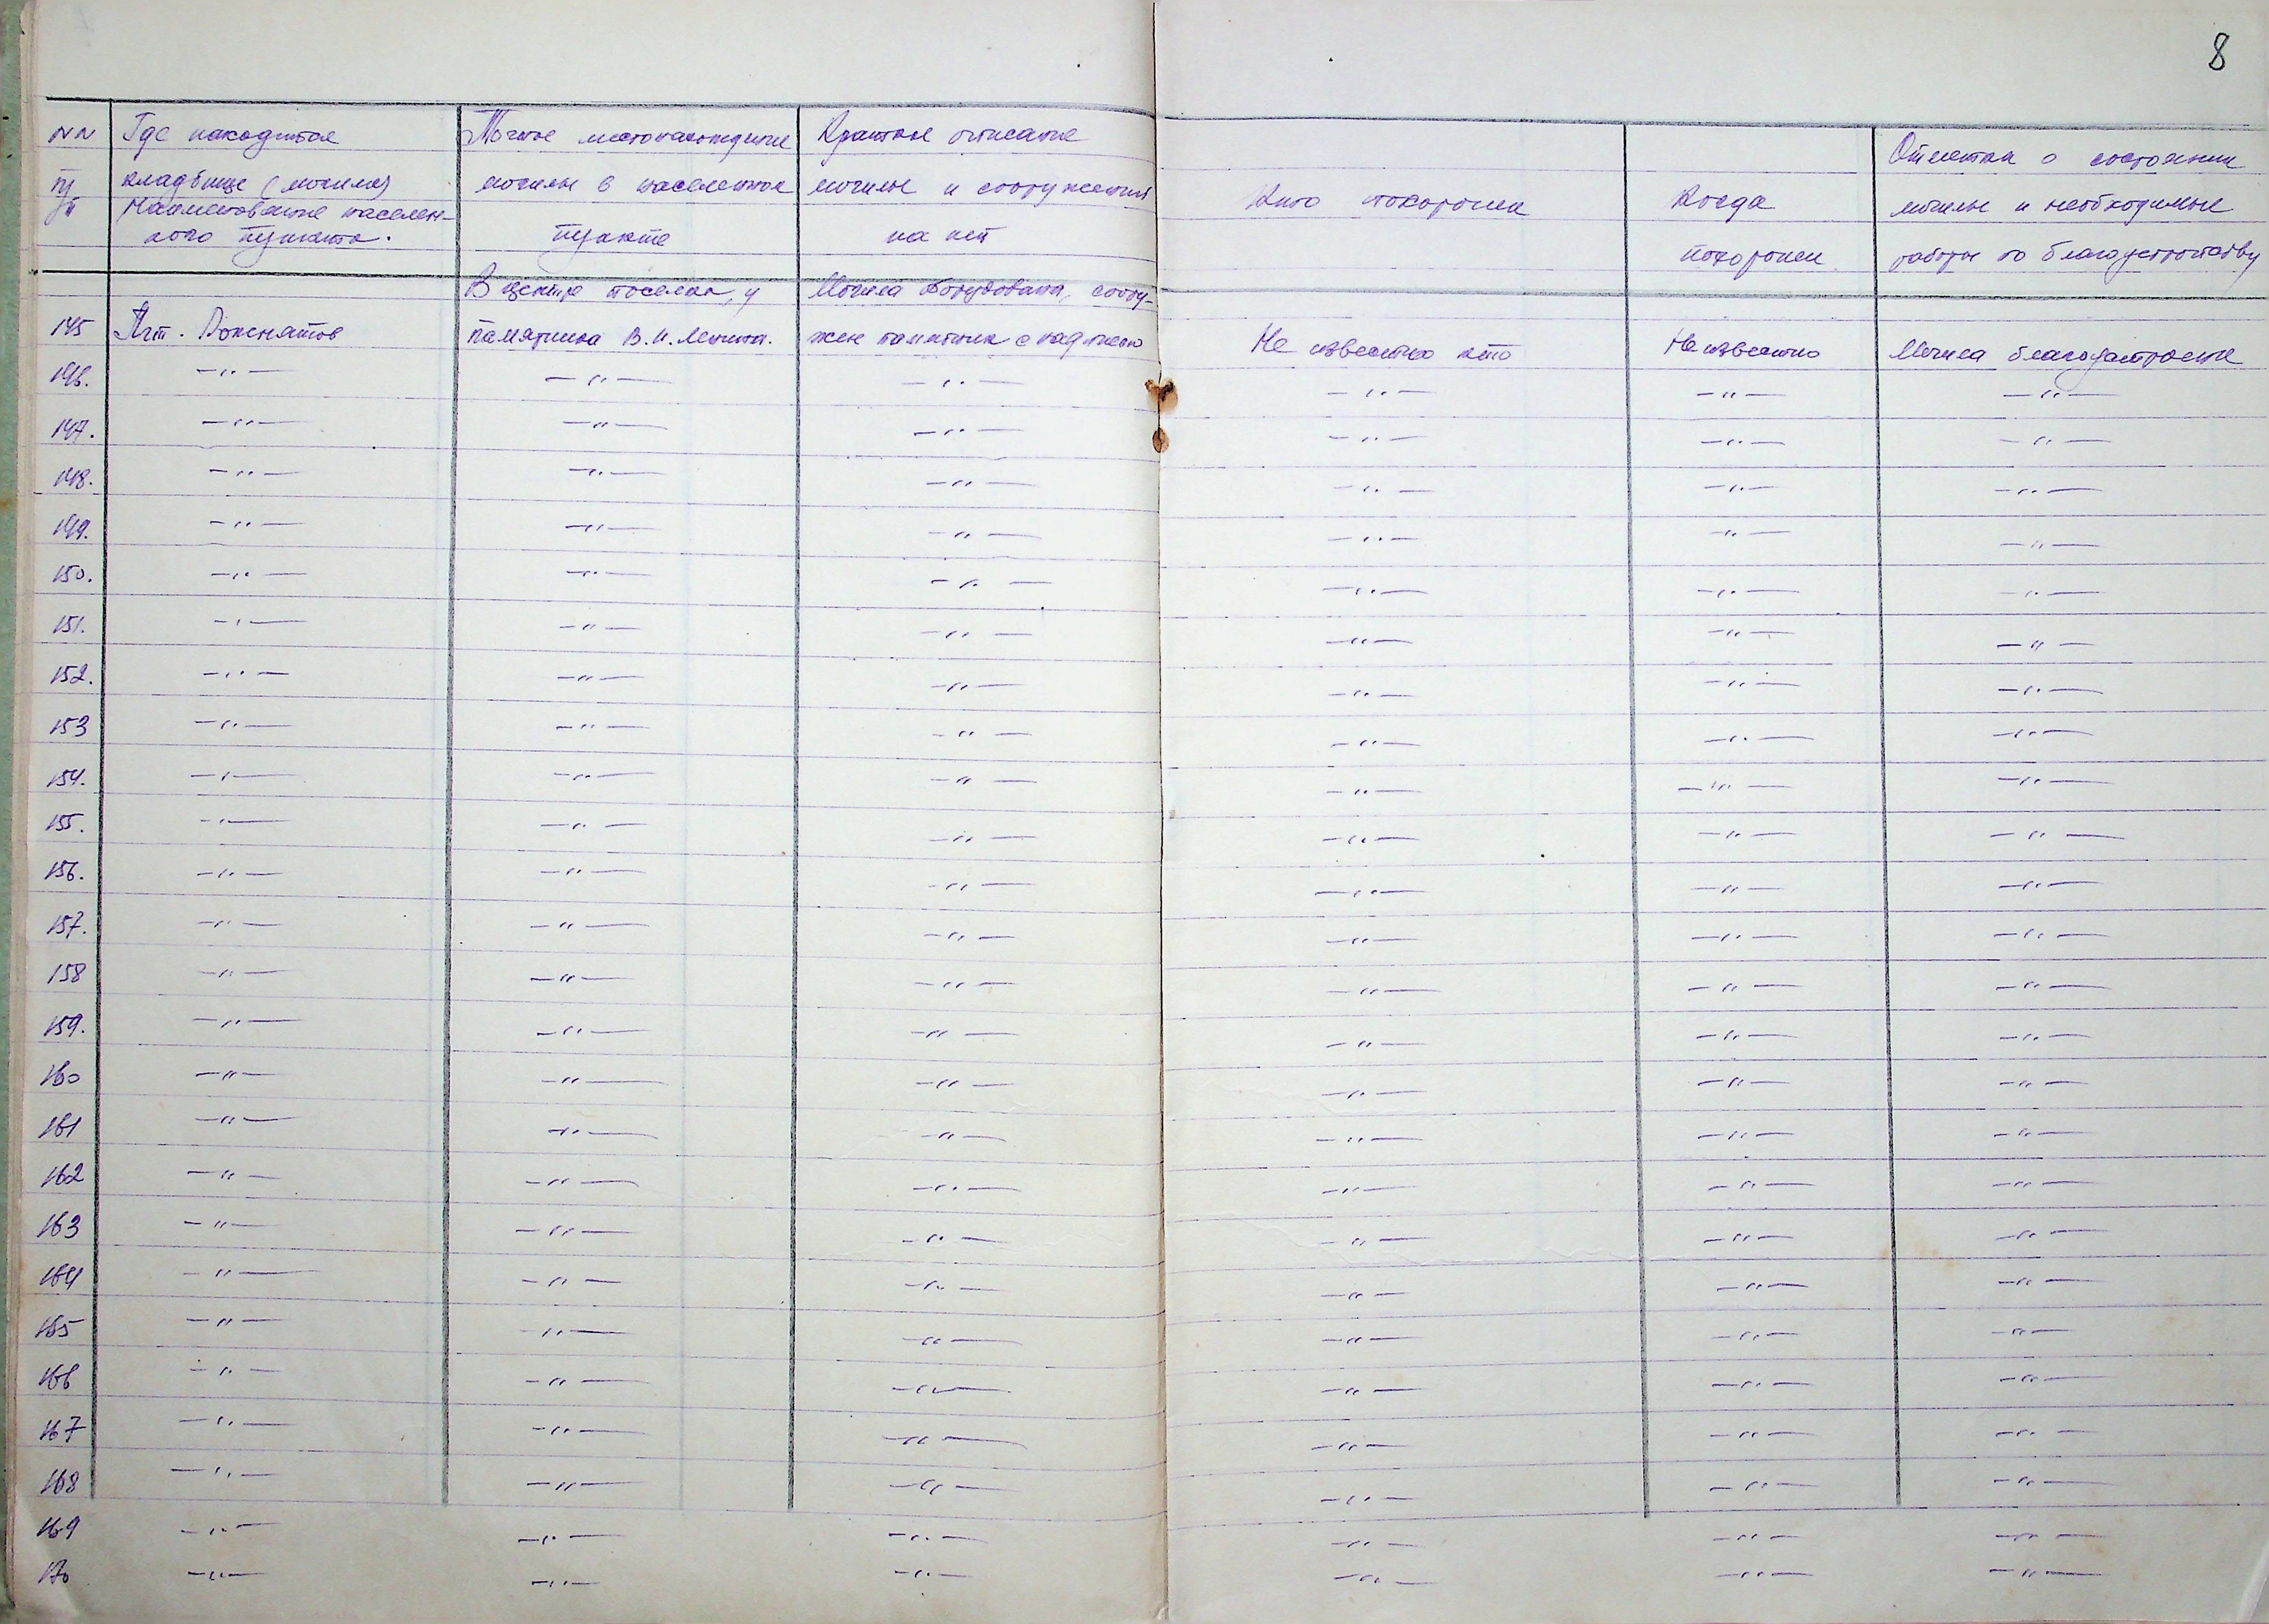 8
NN Где находится Точное местонахождение Краткое описание
Отметка о состоянии
п/п кладбище (могила) могилы в населенном могилы и сооружения Кто похоронен Когда могилы и необходимые
Наименование населен-
ного пункта. пункте на ней похоронен работы по благоустройству
В центре поселка, у Могила оборудована, соору-
145 Пгт. Рожнятов памятника В.И. Ленина. жен памятник с надписью Не известно кто Неизвестно Могила благоустроена
146. —"— —"— —"— —"— —"— —"—
147. —"— —"— —"— —"— —"— —"—
148. —"— —"— —"— —"— —"— —"—
149. —"— —"— —"— —"— —"— —"—
150. —"— —"— —"— —"— —"— —"—
151. —"— —"— —"— —"— —"— —"—
152. —"— —"— —"— —"— —"— —"—
153 —"— —"— —"— —"— —"— —"—
154. —"— —"— —"— —"— —"— —"—
155. —"— —"— —"— —"— —"— —"—
156. —"— —"— —"— —"— —"— —"—
157. —"— —"— —"— —"— —"— —"—
158 —"— —"— —"— —"— —"— —"—
159. —"— —"— —"— —"— —"— —"—
160 —"— —"— —"— —"— —"— —"—
161 —"— —"— —"— —"— —"— —"—
162 —"— —"— —"— —"— —"— —"—
163 —"— —"— —"— —"— —"— —"—
164 —"— —"— —"— —"— —"— —"—
165 —"— —"— —"— —"— —"— —"—
166 —"— —"— —"— —"— —"— —"—
167 —"— —"— —"— —"— —"— —"—
168 —"— —"— —"— —"— —"— —"—
169 —"— —"— —"— —"— —"— —"—
170 —"— —"— —"— —"— —"— —"—